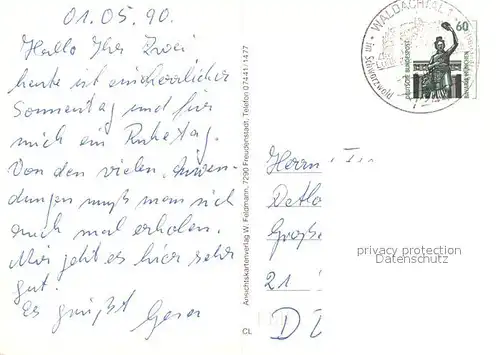 01.05.90.
Hallo Ihr Zwei
heute ist ein herrlicher
Sonnentag und für
mich ein Ruhetag.
Von den vielen Anwen-
dungen muß man sich
auch mal erholen.
Mir geht es hier sehr
gut!
Es grüßt
Ansichtskartenverlag W. Feldmann, 7290 Freudenstadt, Telefon 07441-1477
CL
WALDACHTAL
60
DEUTSCHE BUNDESPOST
Herrn
Detlo
Große
21
D
privacy protection
Datenschutz